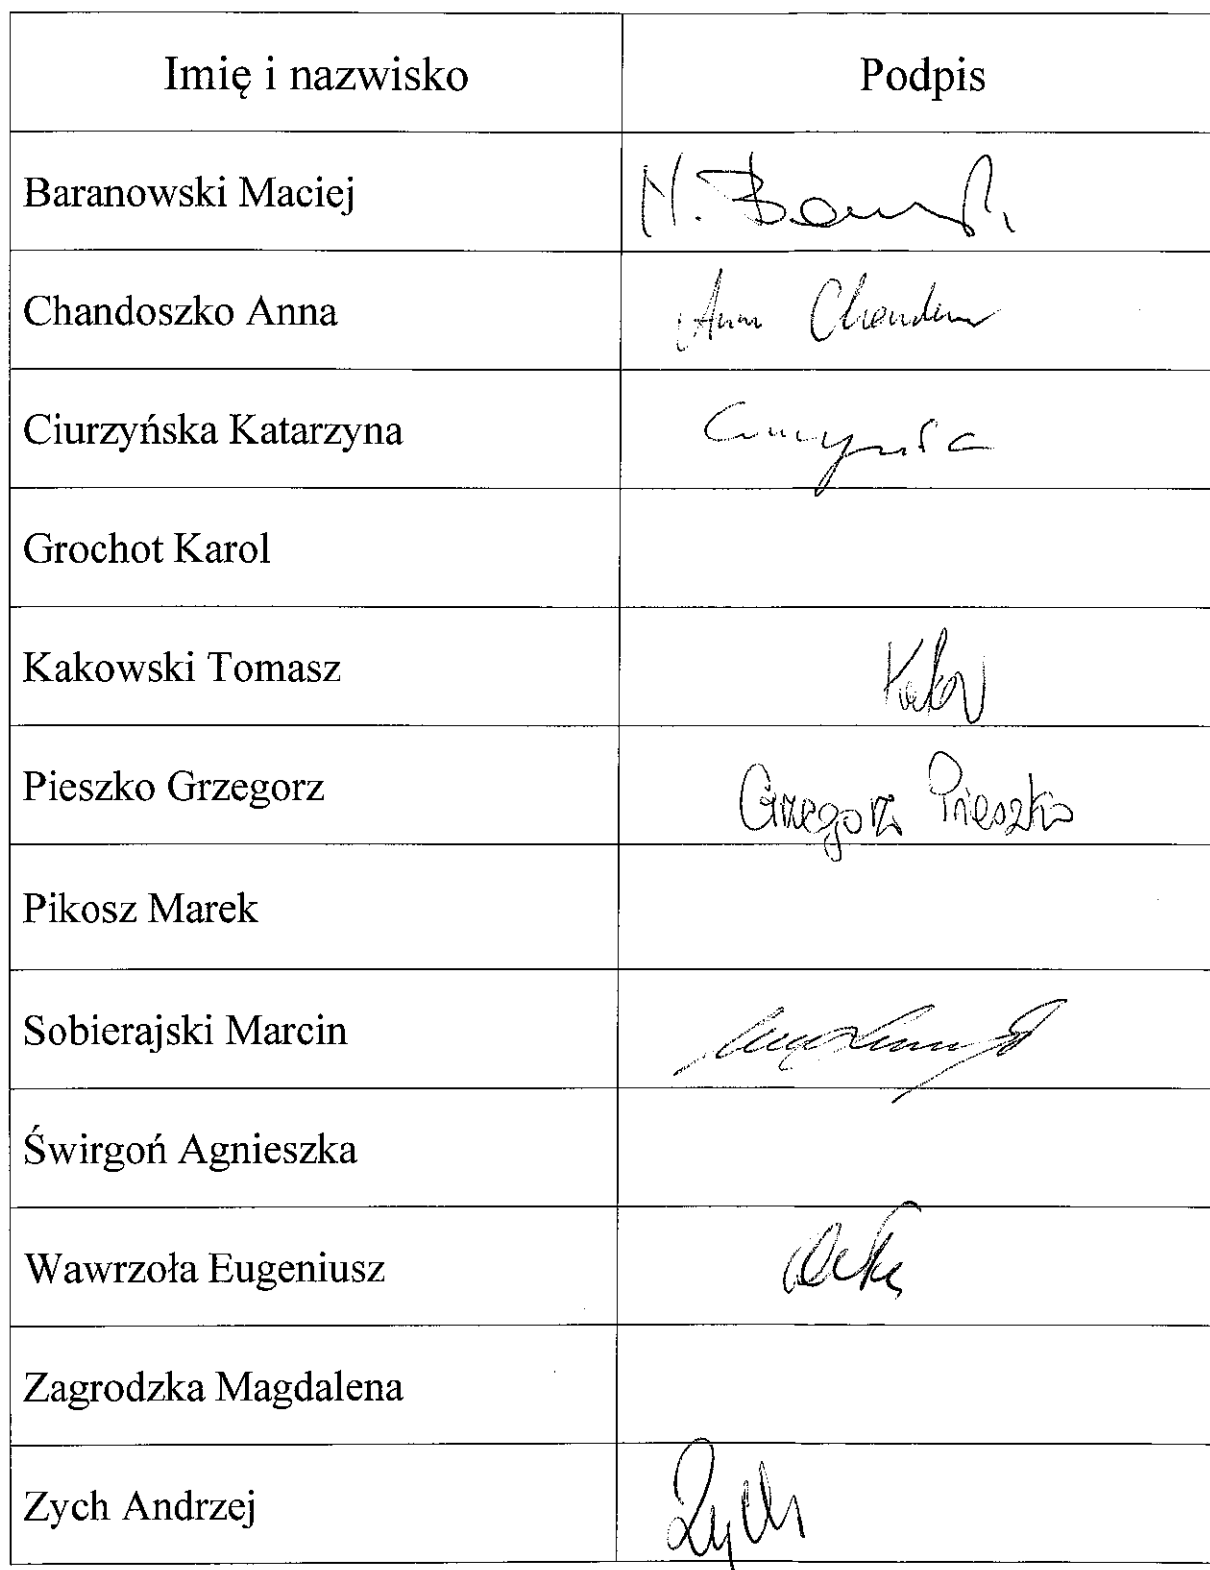 Imię i nazwisko Podpis
Baranowski Maciej M.
Chandoszko Anna Anna
Ciurzyńska Katarzyna
Grochot Karol
Kakowski Tomasz
Pieszko Grzegorz Grzegorz Pieszko
Pikosz Marek
Sobierajski Marcin
Świrgoń Agnieszka
Wawrzoła Eugeniusz
Zagrodzka Magdalena
Zych Andrzej Zych